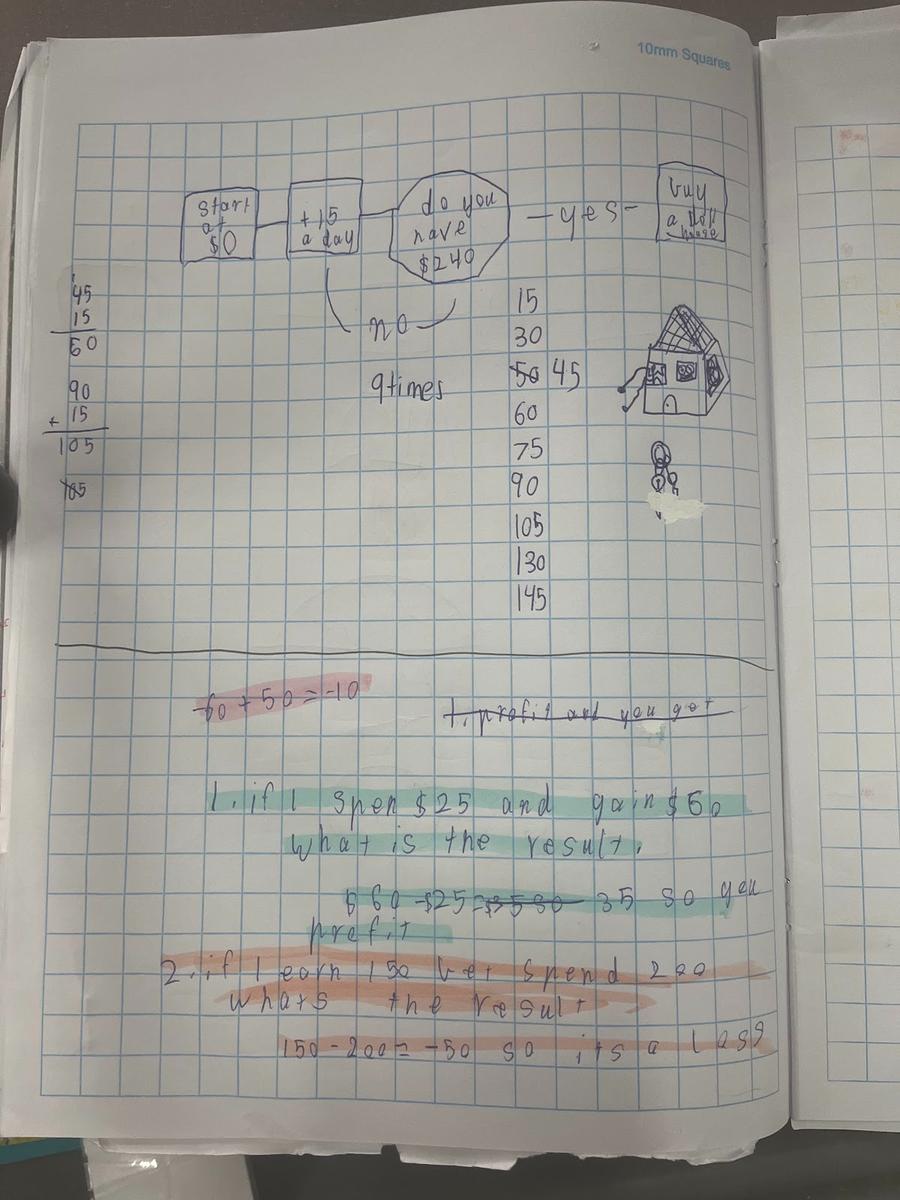 10mm Squares
start
at
$0
+15
a day
do you
have
$240
-yes-
buy
a doll
house
no
9times
45
15
60
90
+ 15
105
105
15
30
50 45
60
75
90
105
130
145
-60+50=-10
1. profit and you got
1. if I spen $25 and gain $60
what is the result.
$60-$25=$3500 35 so you
profit
2. if I earn 150 but spend 200
whats the result
150-200=-50 so its a loss